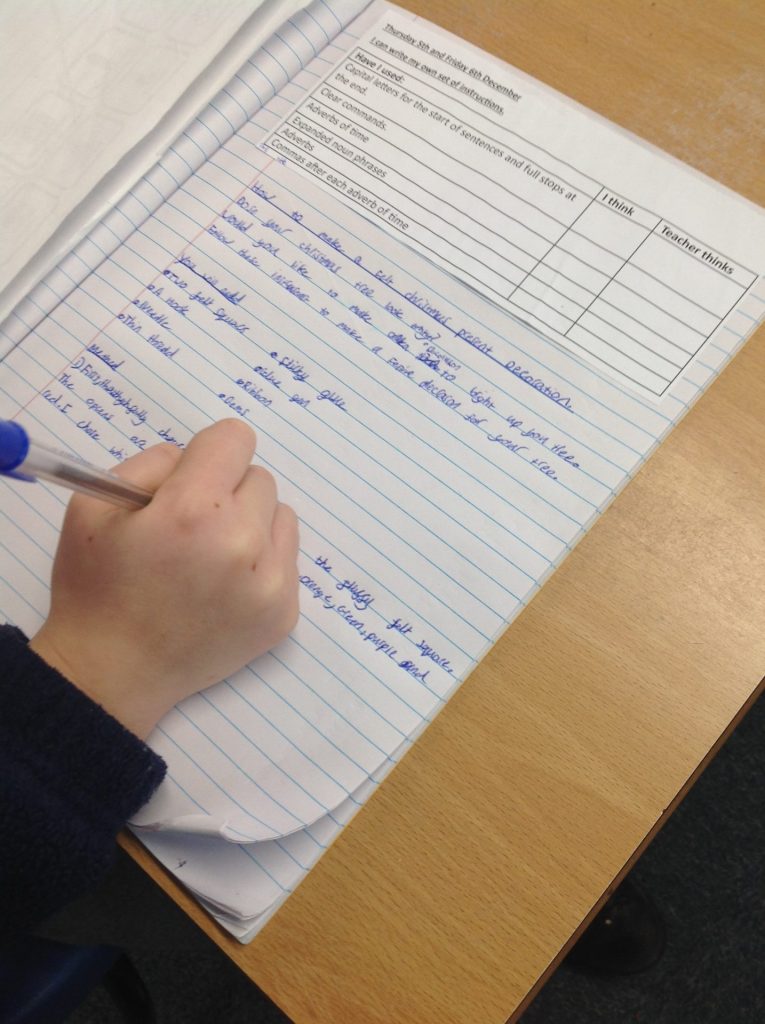 Thursday 5th and Friday 6th December
I can write my own set of instructions.
Have I used:
I think
Teacher thinks
Capital letters for the start of sentences and full stops at
the end.
Clear commands.
Adverbs of time
Expanded noun phrases
Adverbs
Commas after each adverb of time
How to make a Felt christmas present Decoration.
Dose your christmas tree look empty?
Would you like to make a Decoration to light up you tree.
Follow these to make a Festive decoration for your tree.
You will need
•Two felt squares
•A hook
•Needle
•Thin thread
•Stikky glue
•Glue gun
•Ribon
•Gems
Method
1) First,
the fluffy felt square.
The are orange, Green, purple and
red. I chose